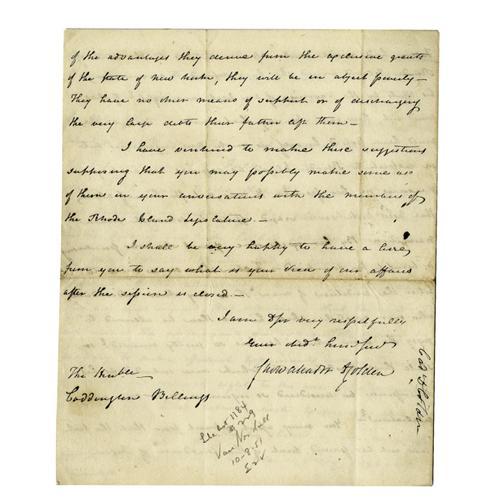 of the advantages they derive from the exclusive grants
of the state of New York, they will be in abject poverty —
They have no other means of support or of discharging
the very large debts their father left them —
I have ventured to make these suggestions
supposing that you may possibly make some use
of them in your conversations with the members of
the Rhode Island Legislature —
I shall be very happy to have a line
from you to say what is your view of our affairs
after the session is closed —
I am Dr Sir very respectfully
Your Obdt
Cadwallader Colden
The Honble
Coddington Billings
1184
Van
10-8-51